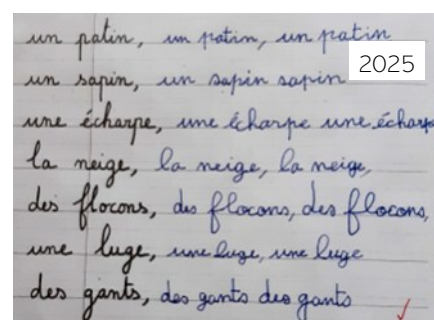 un patin, un patin, un patin
2025
un sapin, un sapin sapin
une écharpe, une écharpe une écharpe
la neige, la neige, la neige,
des flocons, des flocons, des flocons,
une luge, une luge, une luge
des gants, des gants des gants